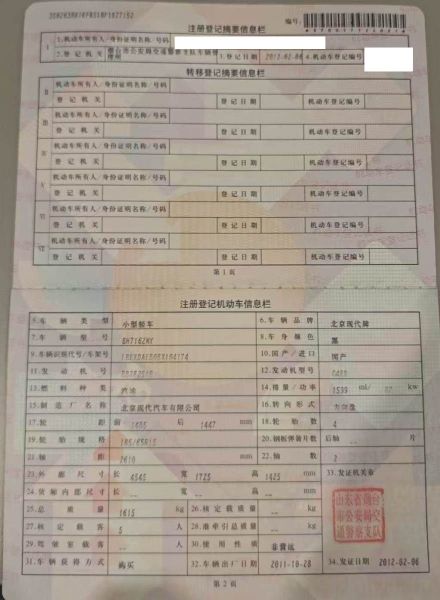 注册登记摘要信息栏
编号:
Ⅰ
1.机动车所有人/身份证明名称/号码
2.登记机关
3.登记日期 2012-02-06 4.机动车登记编号
转移登记摘要信息栏
Ⅱ 机动车所有人/身份证明名称/号码
登记机关 登记日期 机动车登记编号
Ⅲ 机动车所有人/身份证明名称/号码
登记机关 登记日期 机动车登记编号
机动车所有人/身份证明名称/号码
登记机关 登记日期 机动车登记编号
Ⅴ 机动车所有人/身份证明名称/号码
登记机关 登记日期 机动车登记编号
Ⅵ 机动车所有人/身份证明名称/号码
登记机关 登记日期 机动车登记编号
Ⅶ 机动车所有人/身份证明名称/号码
登记机关 登记日期 机动车登记编号
第1页
注册登记机动车信息栏
5.车辆类型 小型轿车 6.车辆品牌 北京现代牌
7.车辆型号 8.车身颜色 黑
9.车辆识别代号/车架号 10.国产/进口 国产
11.发动机号 12.发动机型号
13.燃料种类 汽油 14.排量/功率 ml/ kw
15.制造厂名称 北京现代汽车有限公司 16.转向形式 方向盘
17.轮距 前 后 1447 mm 18.轮胎数 4
19.轮胎规格 20.钢板弹簧片数 后轴 片
21.轴距 2610 mm 22.轴数 2
23.外廓尺寸 长 4545 宽 1725 高 1425 mm 33.发证机关章
24.货厢内部尺寸 长 宽 高 mm
25.总质量 1615 kg 26.核定载质量 kg
27.核定载客 5 人 28.准牵引总质量 kg
29.驾驶室载客 人 30.使用性质 非营运
31.车辆获得方式 购买 32.车辆出厂日期 2011-10-28 34.发证日期 2012-02-06
山东省烟台
市公安局交
通警察支队
第2页